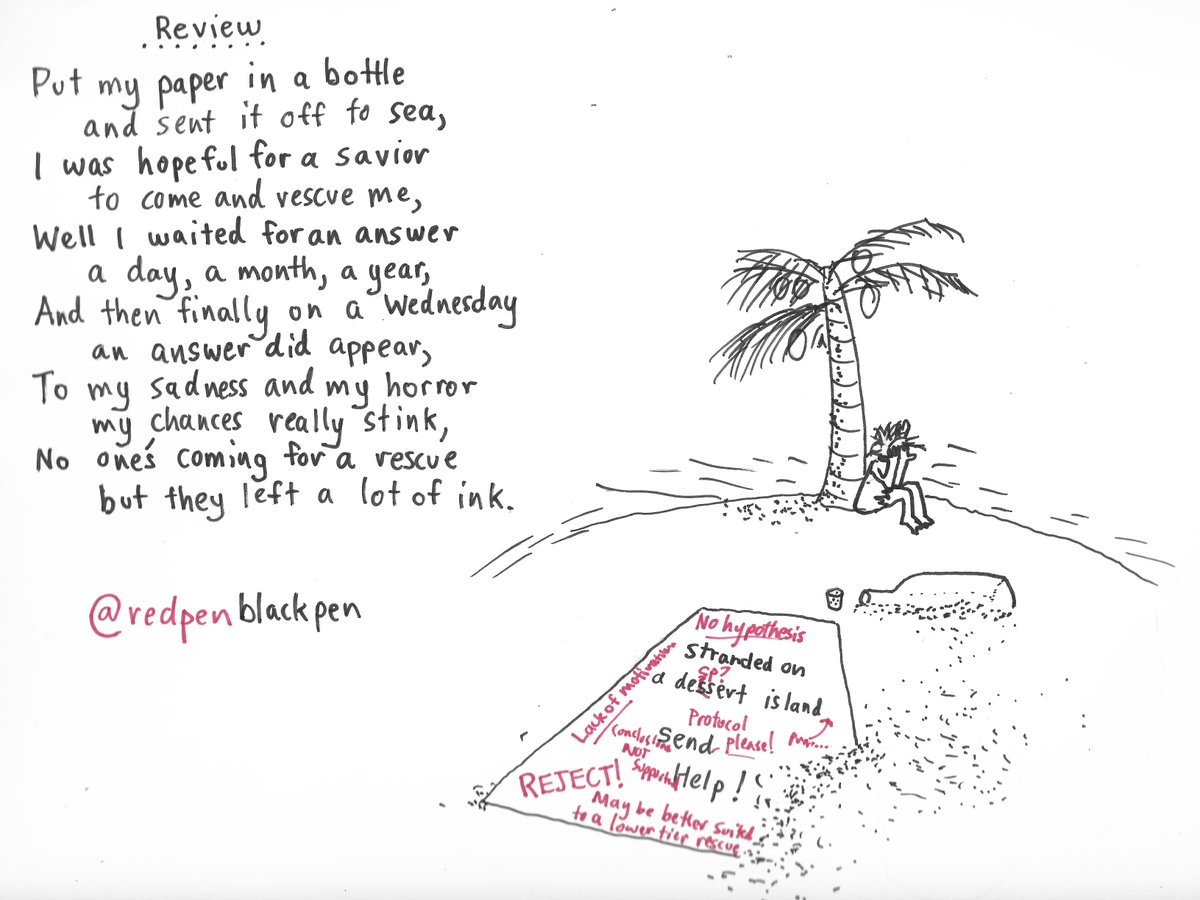 Review
Put my paper in a bottle
and sent it off to sea,
I was hopeful for a savior
to come and rescue me,
Well I waited for an answer
a day, a month, a year,
And then finally on a Wednesday
an answer did appear,
To my sadness and my horror
my chances really stink,
No one's coming for a rescue
but they left a lot of ink.
@redpenblackpen
No hypothesis
Stranded on
sp?
a dessert island
Lack of motivation
Protocol
please!
Send
Conclusions
NOT
Supported
Help!
REJECT!
May be better suited
to a lower tier rescue